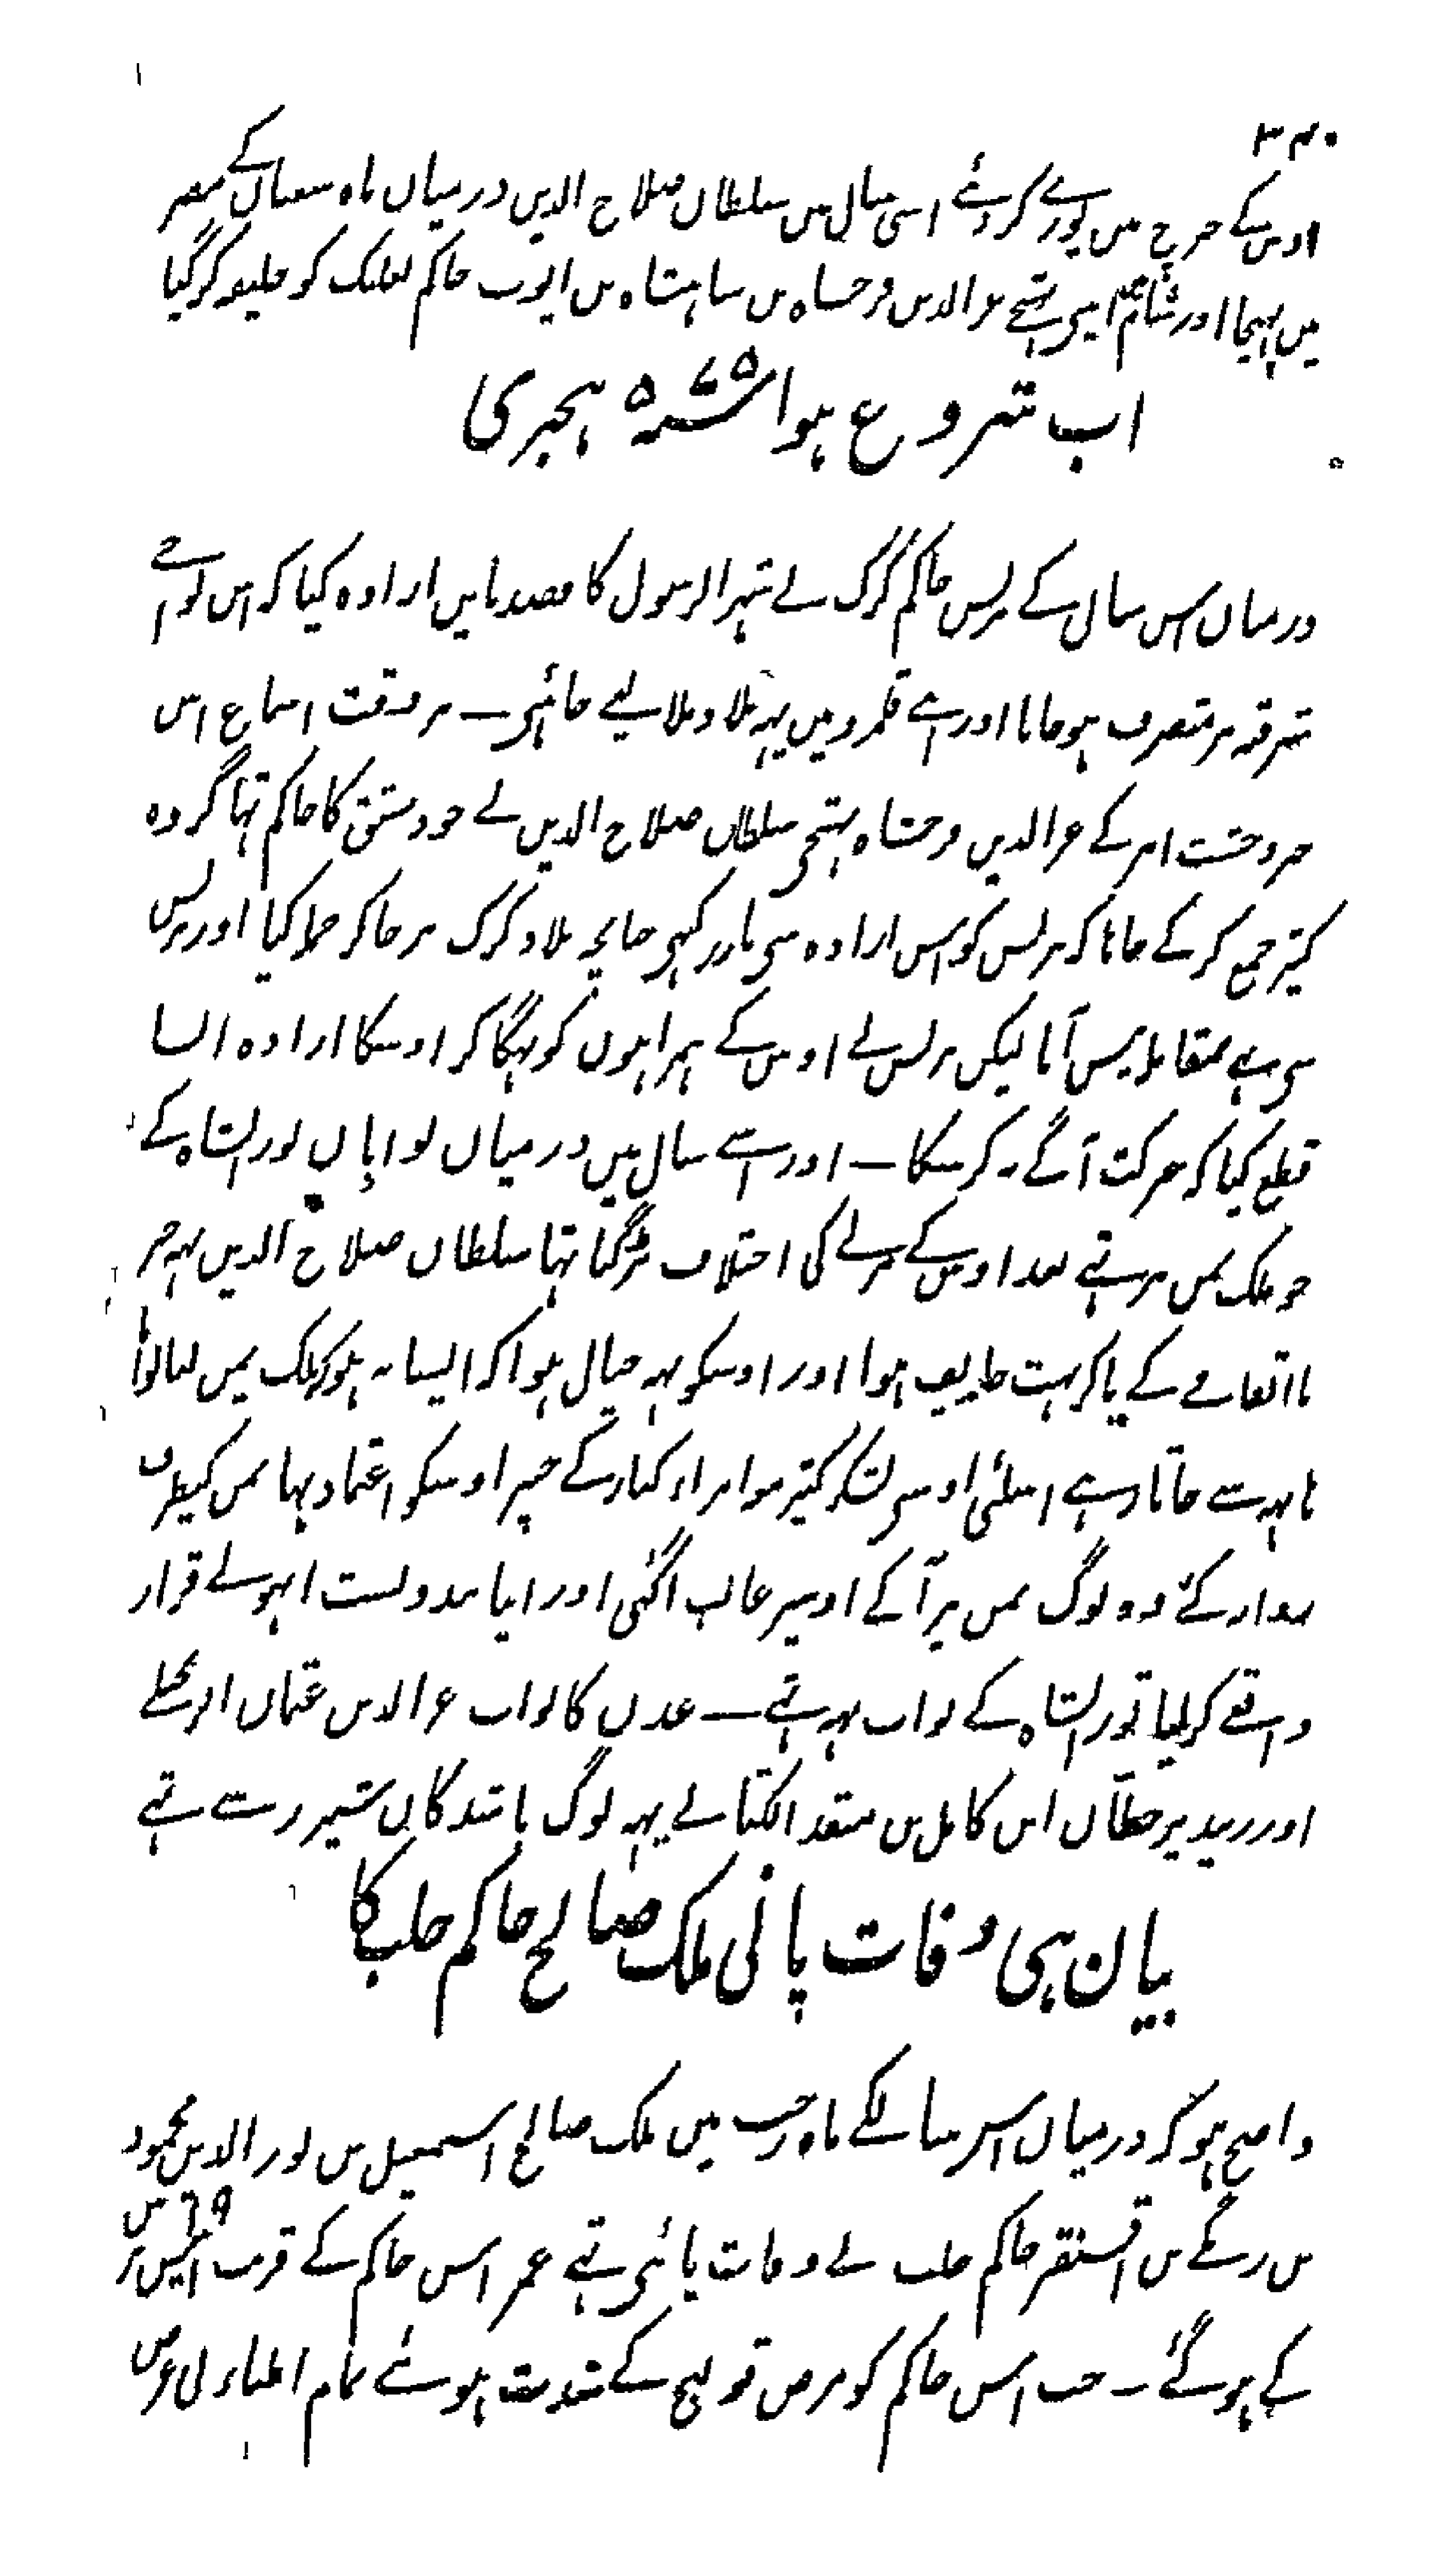 ۳۴۰
اوس کے خرچ میں پورے کر دئے اسی سال میں سلطان صلاح الدین درمیان ماہ شعبان کے مصر
میں پہنچا اور شام میں اپنی بھتیجے عز الدین فرخشاہ بن شاہنشاہ بن ایوب حاکم بعلبک کو خلیفہ کر گیا
اب شروع ہوا ۵۷۷ ہجری
درمیان اس سال کے برنس حاکم کرک نے شہر الرسول کا قصد بایں ارادہ کیا کہ اس نواحے
شرقہ پر متصرف ہو جانا اور اپنے قلمرو میں یہہ بلاد ملا لیے جائیں ــ بروقت استماع اس
خبر وحشت اثر کے عز الدین فرخشاہ بھتیجی سلطان صلاح الدین نے جو دمشق کا حاکم تھا گروہ
کثیر جمع کر کے جاہا کہ برنس کو اس ارادہ سی باز رکھی چنانچہ بلاد کرک پر جا کر حملہ کیا اور برنس
سی بھی مقابلہ پیش آیا لیکن برنس نے اوس کے ہمراہیوں کو بھگا کر اوسکا ارادہ ایسا
قطع کیا کہ حرکت آگے نہ کر سکا ــ اور اسے سال میں درمیان نوابان تورانشاہ کے
جو ملک یمن پر تھے بعد اوس کے مرنے کی اختلاف پڑ گیا تھا سلطان صلاح الدین یہہ خبر
نااتفاقے کے پا کر بہت خایف ہوا اور اوسکو یہہ خیال ہوا کہ ایسا نہ ہو کہ ملک یمن
ہاتھہ سے جاتا رہے اسلئی اوسی لشکر کثیر مع امراء کبار کے جنپر اوسکو اعتماد تھا یمن کیطرف
روانہ کئے وہ لوگ یمن پر آ کے اوسپر غالب آ گئی اور اپنا بندوبست انہوں نے قرار
واقعے کر لیا تورانشاہ کے نواب یہہ تھے ــ عدن کا نواب عز الدین عثمان
اور زبید پر حطّان ابن کامل بن منقذ الکنانے یہہ لوگ باشندگان شیزر سے تھے
بیان ہی وفات پانی ملک صالح حاکم حلب کا
واضح ہو کہ درمیان اس سال کے ماہ رجب میں ملک صالح اسمعیل بن نور الدین محمود
بن زنگے بن اقسنقر حاکم حلب نے وفات پائی تھے عمر اس حاکم کے قریب انیس برس
کے ہو گئے ــ جب اس حاکم کو مرض قولنج کے شدت ہوئے تمام اطباء نی عرض